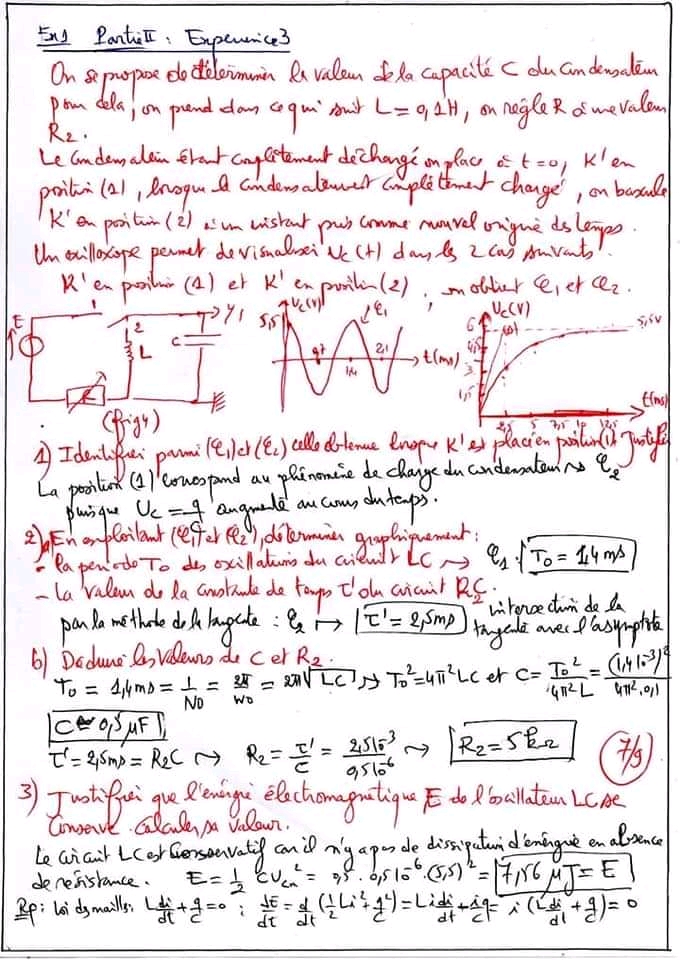 Ex1 Partie II : Experience 3
On se propose de déterminer la valeur de la capacité C du condensateur
pour cela, on prend dans ce qui suit L = 0,1H, on règle R à une valeur
R2.
Le condensateur étant complètement déchargé on place à t=0, K' en
position (1), lorsque le condensateur est complètement chargé, on bascule
K' en position (2) à un instant pris comme nouvel origine des temps.
Un oxilloxope permet de visualiser Uc(t) dans les 2 cas suivants :
K' en position (1) et K' en position (2), on obtient C1 et C2.
E
1
2
L
C
Y1
R
(fig 4)
Uc(V)
5,5
C1
0,7
1,4
2,1
t(ms)
Uc(V)
6
4,5
3
1,5
5,5V
t(ms)
2,5 5 7,5 10 12,5
1) Identifier parmi (C1) et (C2) celle obtenue lorsque K' est placé en position (1). Justifier
La position (1) correspond au phénomène de charge du condensateur ⇝ C2
puisque Uc = q/C augmente au cours du temps.
2) a) En exploitant (C1) et (C2), déterminer graphiquement :
- la période T0 des oscillations du circuit LC ⇝ C1 : T0 = 1,4 ms
- La valeur de la constante de temps τ' du circuit R2C.
par la méthode de la tangente : C2 ↦ τ' = 2,5ms intersection de la
tangente avec l'asymptote
b) Déduire les valeurs de C et R2.
T0 = 1,4ms = 1/N0 = 2π/W0 = 2π√LC ⇝ T0² = 4π²LC et C = T0²/4π²L = (1,4 10⁻³)²/4π².0,1
C ≈ 0,5 μF
τ' = 2,5ms = R2C ⇝ R2 = τ'/C = 2,5 10⁻³/0,5 10⁻⁶ ⇝ R2 = 5 kΩ
7/9
3) Justifier que l'énergie électromagnétique E de l'oscillateur LC se
conserve. Calculer sa valeur.
Le circuit LC est Conservatif car il n'y a pas de dissipation d'énergie en absence
de résistance. E = 1/2 C Ucm² = 0,5 . 0,5 10⁻⁶ . (5,5)² = 7,56 μJ = E
Rp : loi des mailles : L di/dt + q/C = 0 ; dE/dt = d/dt (1/2 Li² + q²/C) = Li di/dt + iq/C = i (L di/dt + q/C) = 0